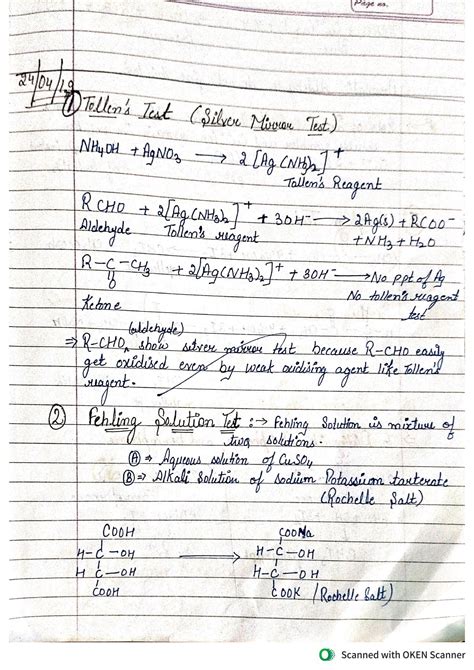 Page no.
24/04/19
① Tollen's Test (Silver Mirror Test)
NH4OH + AgNO3 ⟶ 2[Ag(NH3)2]+
Tollen's Reagent
RCHO + 2[Ag(NH3)2]+ + 3OH- ⟶ 2Ag(s) + RCOO-
Aldehyde Tollen's reagent + NH3 + H2O
R-C-CH3 + 2[Ag(NH3)2]+ + 3OH- ⟶ No ppt of Ag
O
No tollen's reagent
Ketone test
(aldehyde)
⇒ R-CHO show silver mirror test because R-CHO easily
get oxidised even by weak oxidising agent like Tollen's
reagent.
② Fehling Solution Test :→ Fehling Solution is mixture of
two solutions.
Ⓐ ⇒ Aqueous solution of CuSO4
Ⓑ ⇒ Alkali Solution of sodium Potassium tarterate
(Rochelle Salt)
COOH COONa
H-C-OH ⟶ H-C-OH
H C OH H-C-OH
COOH COOK (Rochelle Salt)
Scanned with OKEN Scanner